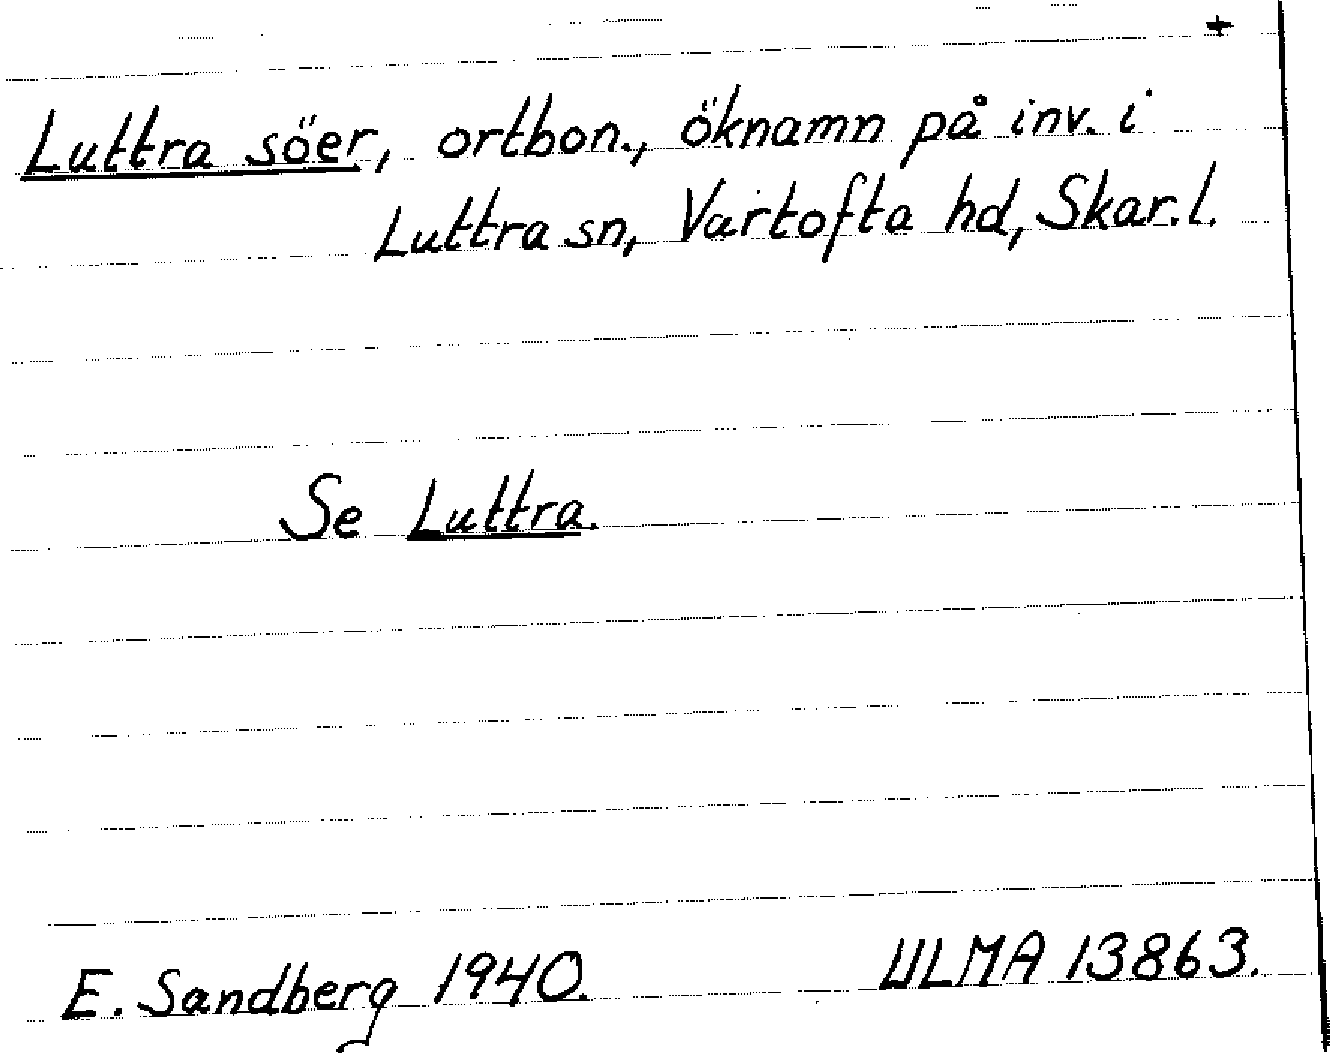 +
Luttra söer, ortbon., öknamn på inv. i
Luttra sn, Vartofta hd, Skar. l.
Se Luttra.
E. Sandberg 1940. ULMA 13863.